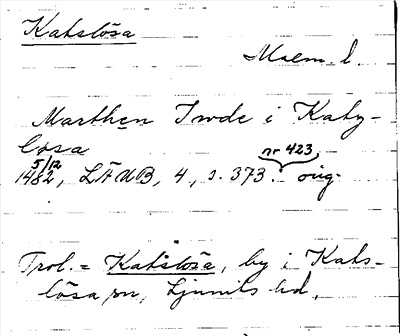 Katslösa
Malm. l.
Marthen Twde i Katz-
løsa
5/12
1482, LÄUB, 4, s. 373. orig.
nr 423
Trol. = Katslösa, by i Kats-
lösa sn, Ljunits hd.